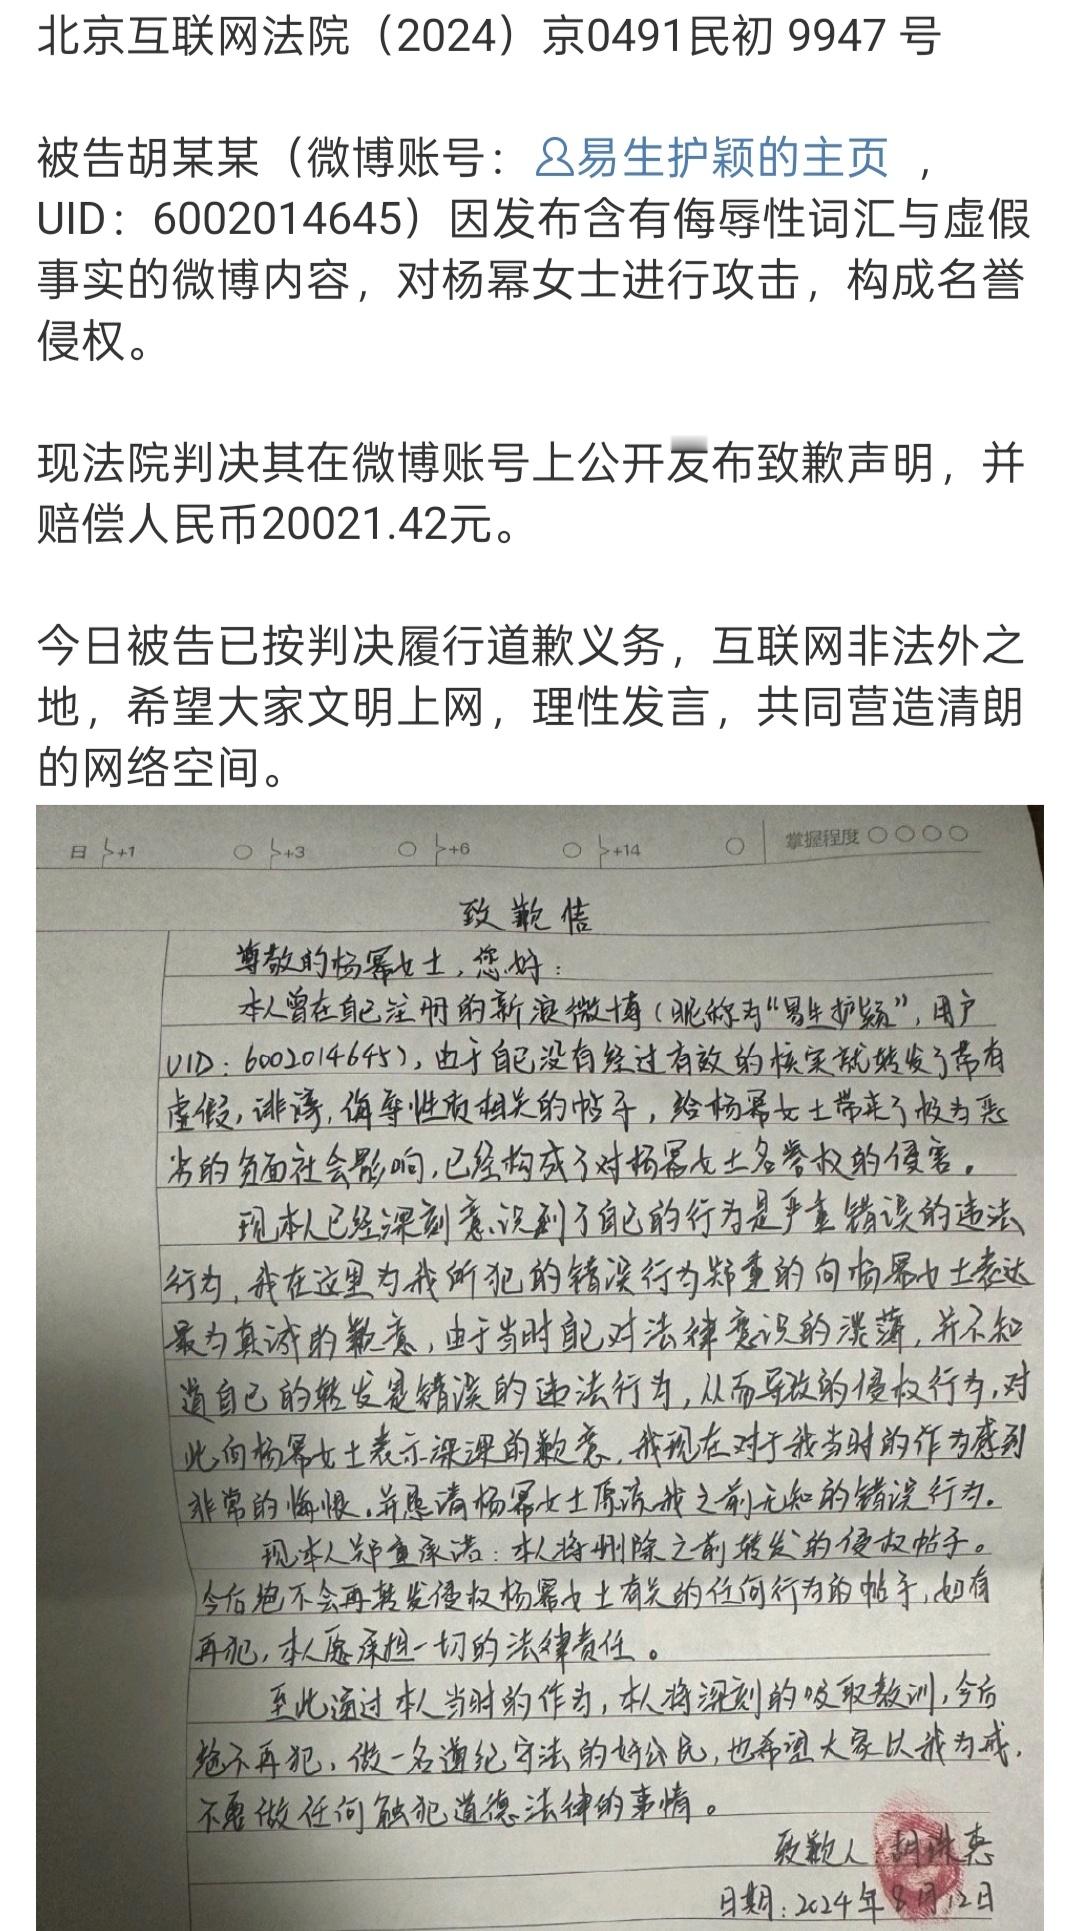 北京互联网法院（2024）京0491民初 9947 号
被告胡某某（微博账号：易生护颖的主页 ，
UID：6002014645）因发布含有侮辱性词汇与虚假
事实的微博内容，对杨幂女士进行攻击，构成名誉
侵权。
现法院判决其在微博账号上公开发布致歉声明，并
赔偿人民币20021.42元。
今日被告已按判决履行道歉义务，互联网非法外之
地，希望大家文明上网，理性发言，共同营造清朗
的网络空间。
日 +1 +3 +6 +14 掌握程度
致歉信
尊敬的杨幂女士，您好：
本人曾在自己注册的新浪微博（昵称为“易生护颖”，用户
UID：6002014645），由于自己没有经过有效的核实就转发了带有
虚假，诽谤，侮辱性质相关的帖子，给杨幂女士带来了极为恶
劣的负面社会影响，已经构成了对杨幂女士名誉权的侵害。
现本人已经深刻意识到了自己的行为是严重错误的违法
行为，我在这里为我所犯的错误行为郑重的向杨幂女士表达
最为真诚的歉意，由于当时自己对法律意识的淡薄，并不知
道自己的转发是错误的违法行为，从而导致的侵权行为，对
此向杨幂女士表示深深的歉意，我现在对于我当时的作为感到
非常的悔恨，并恳请杨幂女士原谅我之前无知的错误行为。
现本人郑重承诺：本人将删除之前转发的侵权帖子。
今后绝不会再转发侵权杨幂女士有关的任何行为的帖子，如有
再犯，本人愿承担一切的法律责任。
至此通过本人当时的作为，本人将深刻的吸取教训，今后
绝不再犯，做一名遵纪守法的好公民，也希望大家以我为戒，
不要做任何触犯道德法律的事情。
致歉人 胡 惠
日期：2024年8月12日